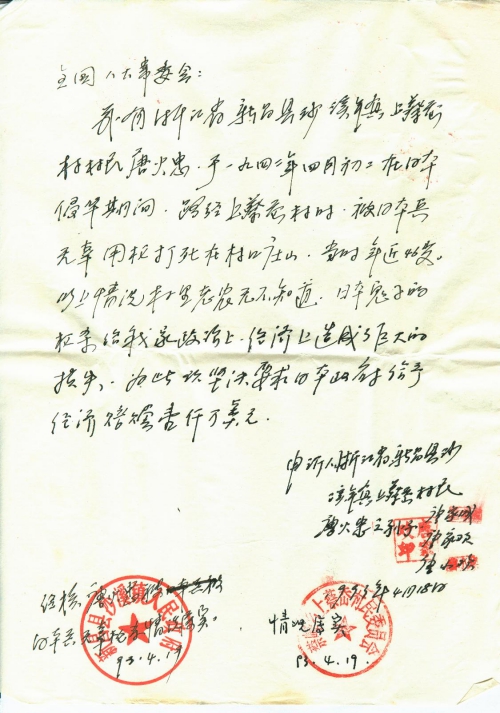 全国人大常委会：
我们有浙江省新昌县沙溪镇上蔡岙
村村民唐火忠，于一九四二年四月初二在日本
侵华期间，路经上蔡岙村时，被日本兵
无辜用枪打死在村口庄山，当时年近46岁。
以上情况本村老农无不知道，日本鬼子的
枉杀给我家政治上、经济上造成了巨大的
损失，为此坚决要求日本政府给予
经济赔偿壹仟万美元。
申诉人浙江省新昌县沙
溪镇上蔡岙村民
唐火忠之孙子
一九九三年4月18日
经核
日本兵无辜打死情况属实。
93.4.19
新昌县沙溪镇人民政府
情况属实
93.4.19.
上蔡岙村民委员会